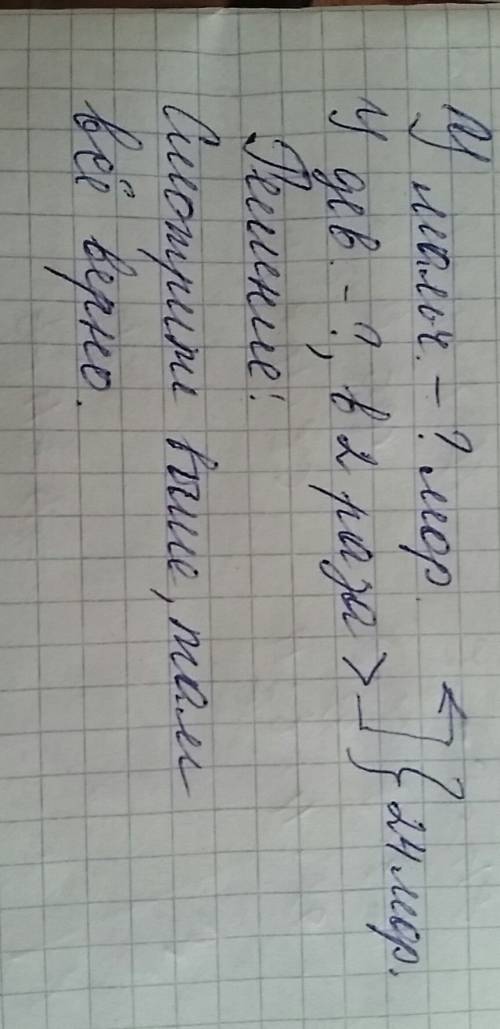 У мальч. - ? мор.
У дев. - ?, в 2 раза > } 24 мор.
Решение:
Смотрите выше, там
всё верно.